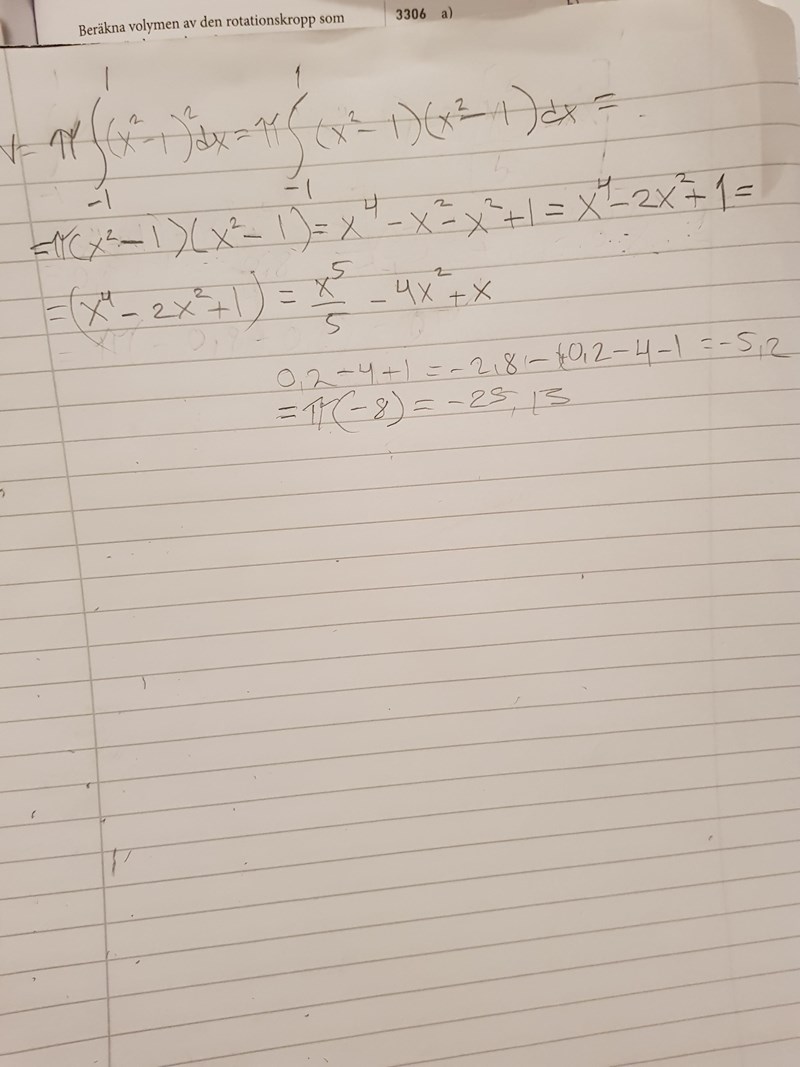 Beräkna volymen av den rotationskropp som
3306 a)
V = π∫₋₁¹(x²-1)²dx = π∫₋₁¹(x²-1)(x²-1)dx =
=π(x²-1)(x²-1)=x⁴-x²-x²+1=x⁴-2x²+1=
=(x⁴-2x²+1) = x⁵/5 - 4x² + x
0,2-4+1=-2,8--0,2-4-1=-5,2
=π(-8)=-25,13